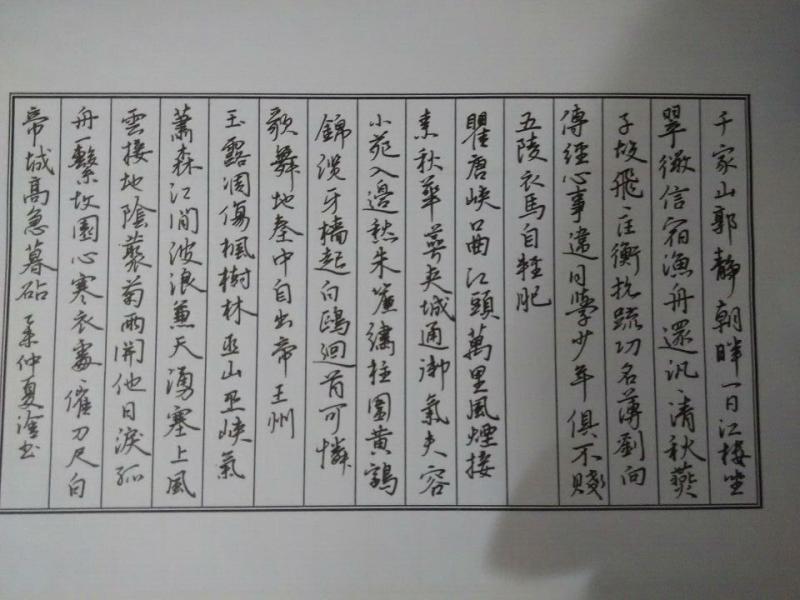 千家山郭靜朝暉一日江樓坐
翠微信宿漁舟還汎〻清秋燕
子故飛匡衡抗疏功名薄劉向
傳經心事違同學少年俱不賤
五陵衣馬自輕肥
瞿唐峽口曲江頭萬里風煙接
素秋華萼夾城通御氣夫容
小苑入邊愁朱簾繡柱圍黃鶴
錦纜牙檣起白鷗迴首可憐
歌舞地秦中自古帝王州
玉露凋傷楓樹林巫山巫峽氣
蕭森江間波浪兼天湧塞上風
雲接地陰叢菊兩開他日淚孤
舟一繫故園心寒衣處〻催刀尺白
帝城高急暮砧 仲夏書